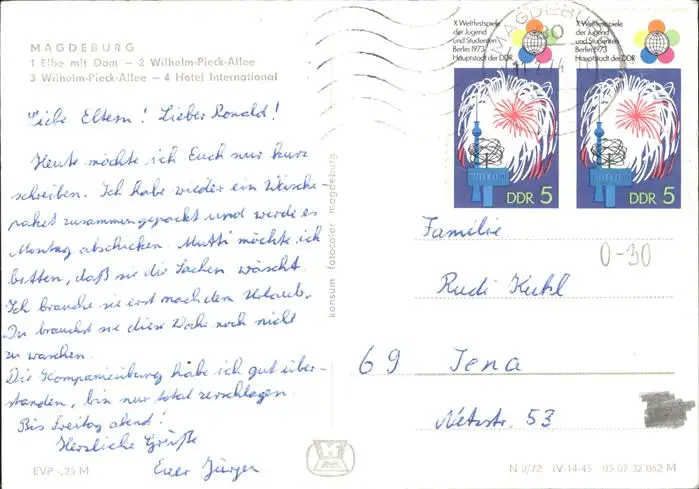 MAGDEBURG
1 Elbe mit Dom — 2 Wilhelm-Pieck-Allee
3 Wilhelm-Pieck-Allee — 4 Hotel International
Liebe Eltern! Lieber Ronald!
Heute möchte ich Euch nur kurz
schreiben. Ich habe wieder ein Wäsche-
paket zusammengepackt und werde es
Montag abschicken. Mutti möchte ich
bitten, daß sie die Sachen wäscht.
Ich brauche sie erst nach dem Urlaub.
Du brauchst sie diese Woche noch nicht
zu waschen.
Die Kompanieübung habe ich gut über-
standen, bin nur total zerschlagen.
Bis Freitag abend!
Herzliche Grüße
Euer Jürgen
EVP -,25 M
konsum fotocolor magdeburg
X. Weltfestspiele
der Jugend
und Studenten
Berlin 1973
Hauptstadt der DDR
DDR 5
X. Weltfestspiele
der Jugend
und Studenten
Berlin 1973
Hauptstadt der DDR
DDR 5
MAGDEBU
Familie
0-30
Rudi Kuhl
69 Jena
Netzstr. 53
N 2/72 IV-14-45 05 07 32 062 M